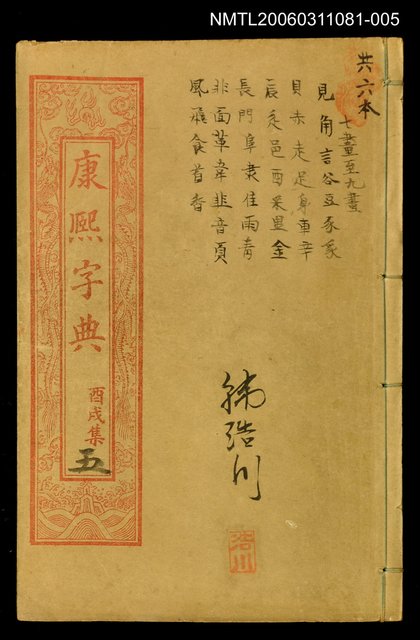 NMTL20060311081-005
共六本
七畫至九畫
見角言谷豆豕豸
貝赤走足身車辛
辰辵邑酉釆里金
長門阜隶隹雨青
非面革韋韭音頁
風飛食首香
浩川
浩川
康熙字典
酉戌集
五